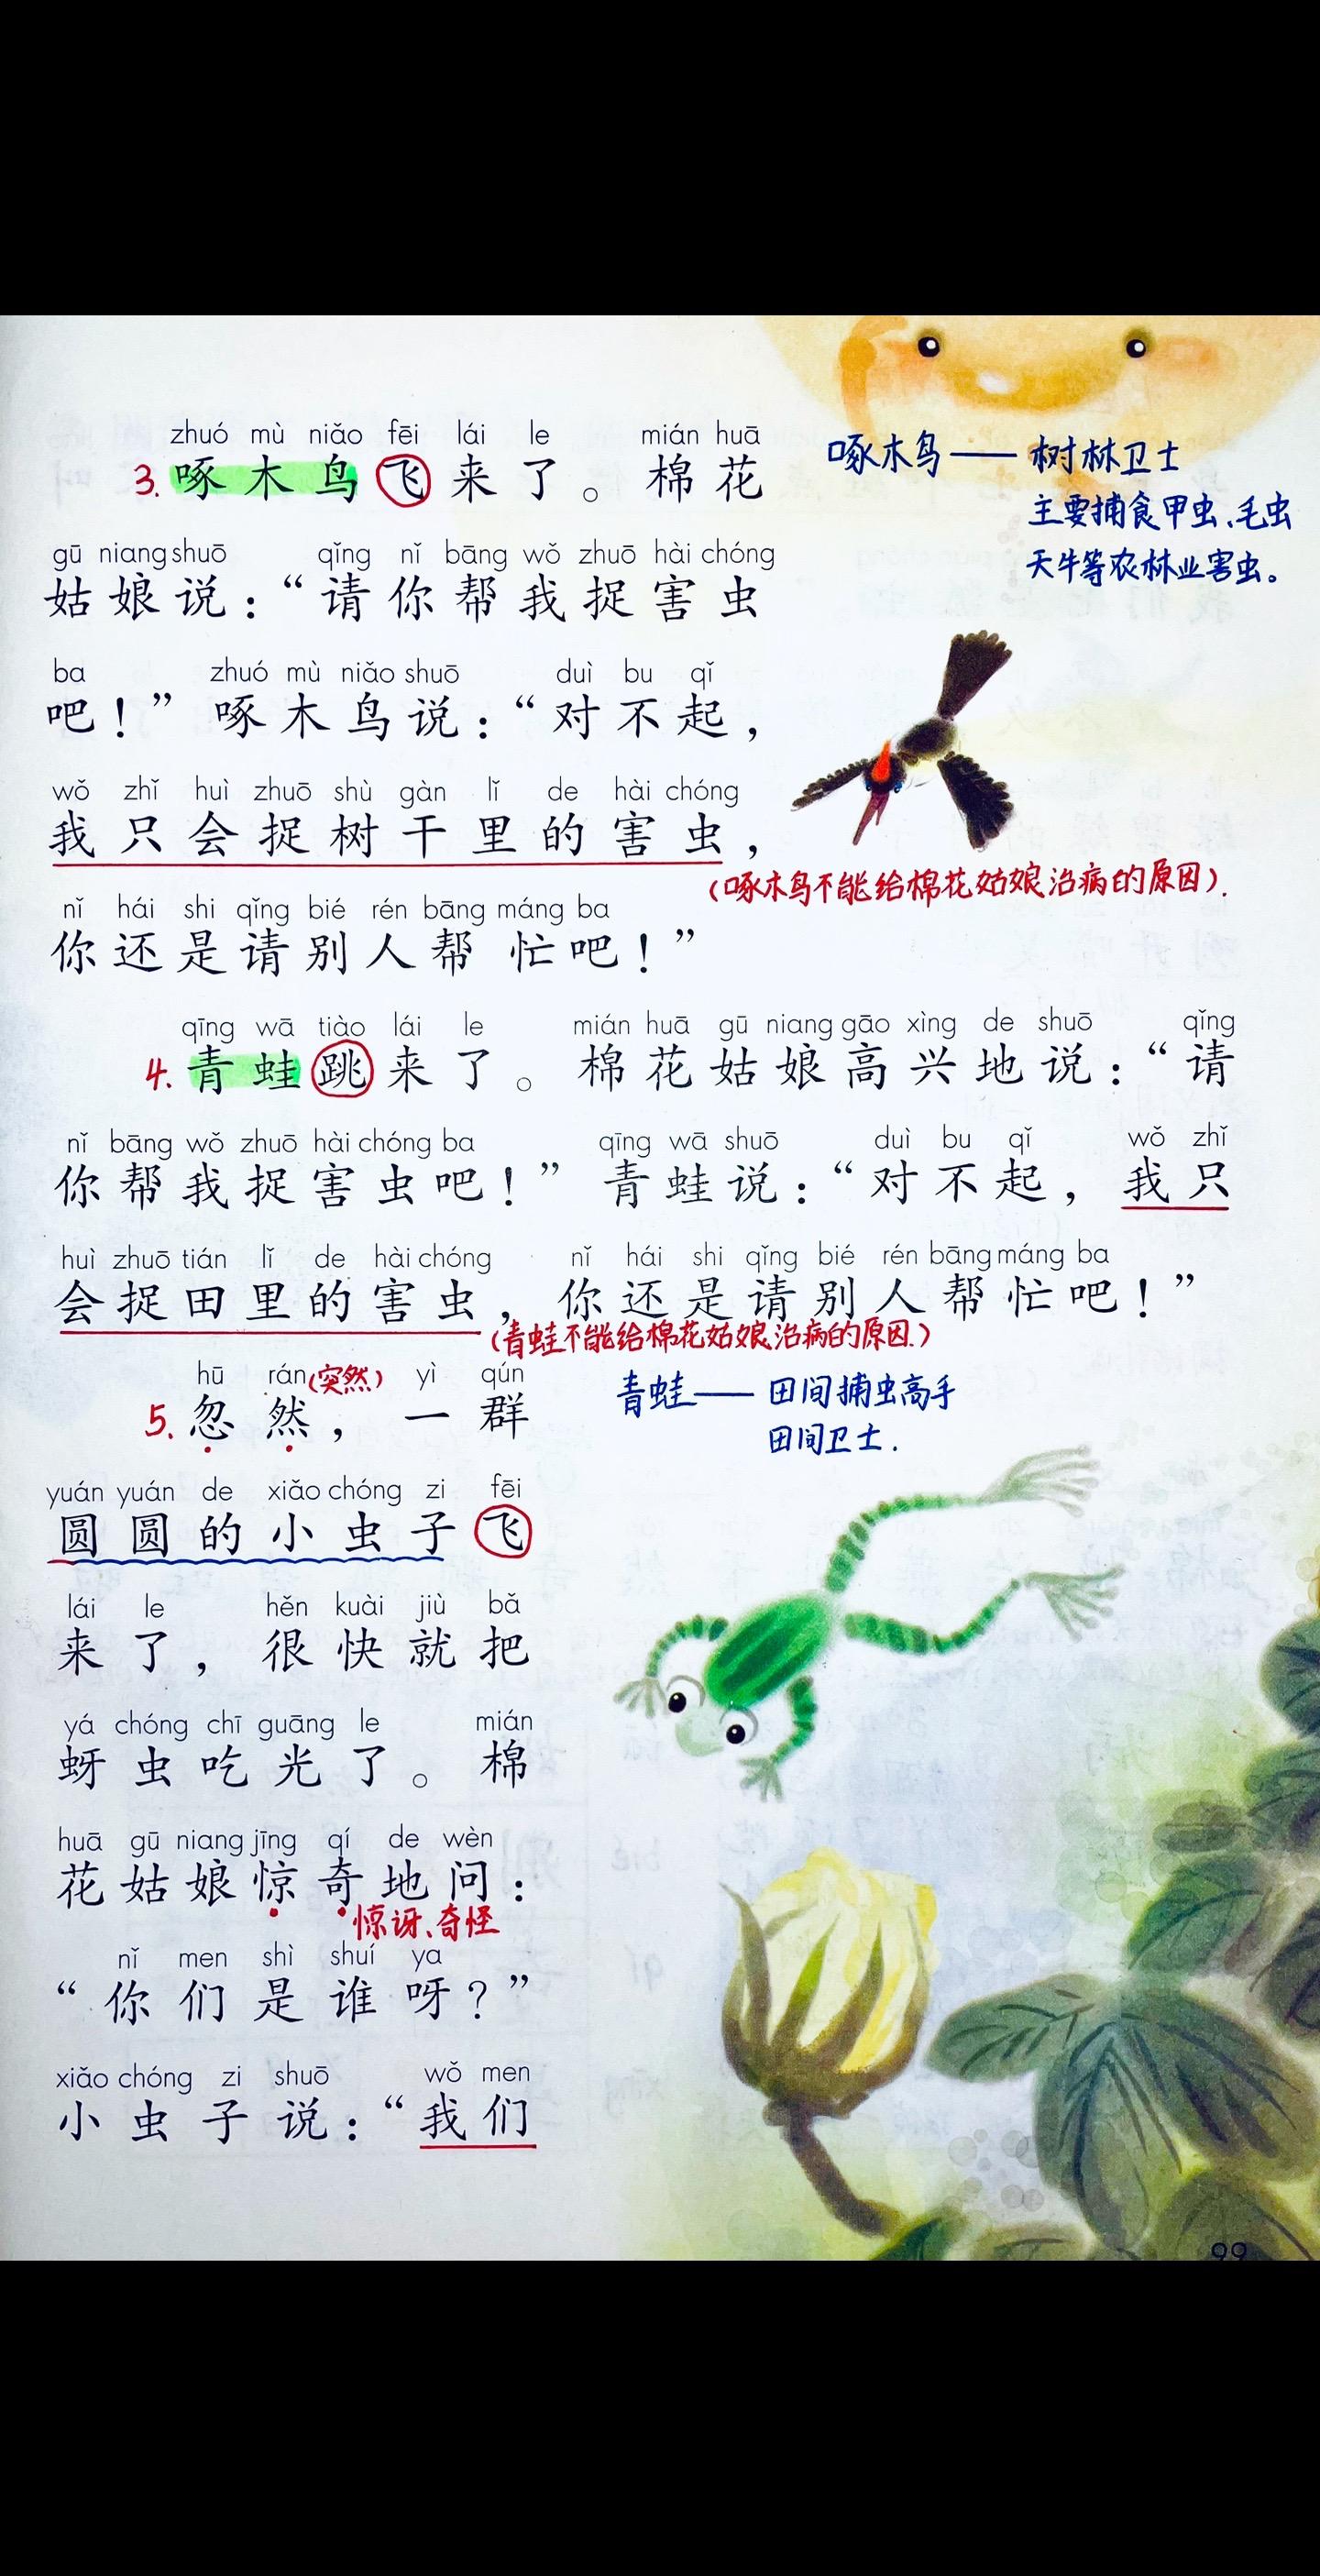 zhuó mù niǎo fēi lái le mián huā
3. 啄木鸟飞来了。棉花
啄木鸟——树林卫士
主要捕食甲虫、毛虫
天牛等农林业害虫。
gū niang shuō qǐng nǐ bāng wǒ zhuō hài chóng
姑娘说：“请你帮我捉害虫
ba zhuó mù niǎo shuō duì bu qǐ
吧！”啄木鸟说：“对不起，
wǒ zhǐ huì zhuō shù gàn lǐ de hài chóng
我只会捉树干里的害虫，
(啄木鸟不能给棉花姑娘治病的原因).
nǐ hái shi qǐng bié rén bāng máng ba
你还是请别人帮忙吧！”
qīng wā tiào lái le mián huā gū niang gāo xìng de shuō qǐng
4. 青蛙跳来了。棉花姑娘高兴地说：“请
nǐ bāng wǒ zhuō hài chóng ba qīng wā shuō duì bu qǐ wǒ zhǐ
你帮我捉害虫吧！”青蛙说：“对不起，我只
huì zhuō tián lǐ de hài chóng nǐ hái shi qǐng bié rén bāng máng ba
会捉田里的害虫，你还是请别人帮忙吧！”
(青蛙不能给棉花姑娘治病的原因.)
hū rán (突然) yì qún
5. 忽然，一群
青蛙——田间捕虫高手
田间卫士.
yuán yuán de xiǎo chóng zi fēi
圆圆的小虫子飞
lái le hěn kuài jiù bǎ
来了，很快就把
yá chóng chī guāng le mián
蚜虫吃光了。棉
huā gū niang jīng qí de wèn
花姑娘惊奇地问：
惊讶、奇怪
nǐ men shì shuí ya
“你们是谁呀？”
xiǎo chóng zi shuō wǒ men
小虫子说：“我们
99